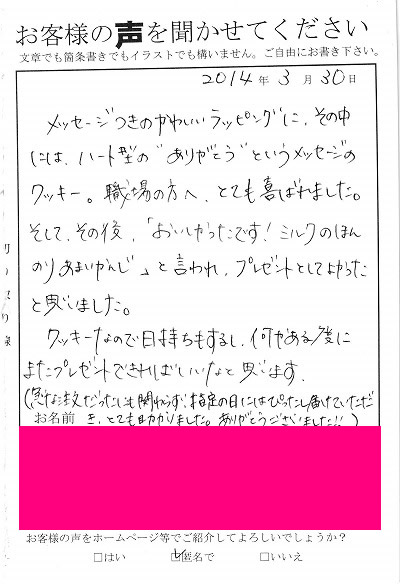 お客様の声を聞かせてください
文章でも箇条書きでもイラストでも構いません。ご自由にお書き下さい。
2014年 3月 30日
メッセージつきのかわいいラッピングに、その中
には、ハート型の"ありがとう"というメッセージの
クッキー。職場の方へ、とても喜ばれました。
そして、その後、「おいしかったです!ミルクのほん
のりあまいかんじ」と言われ、プレゼントとしてよかった
と思いました。
クッキーなので日持ちもするし、何かある度に
またプレゼントできればいいなと思います。
(急な注文だったにも関わらず、指定の日にはぴったし届けていただ
き、とても助かりました。ありがとうございました!!)
お名前
お客様の声をホームページ等でご紹介してよろしいでしょうか?
□はい □匿名で □いいえ